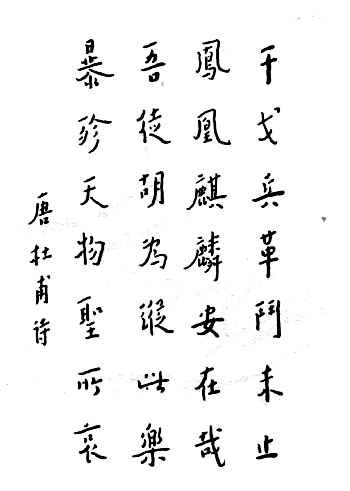 干戈兵革鬥未止
鳳凰麒麟安在哉
吾徒胡為縱此樂
暴殄天物聖所哀
唐杜甫詩